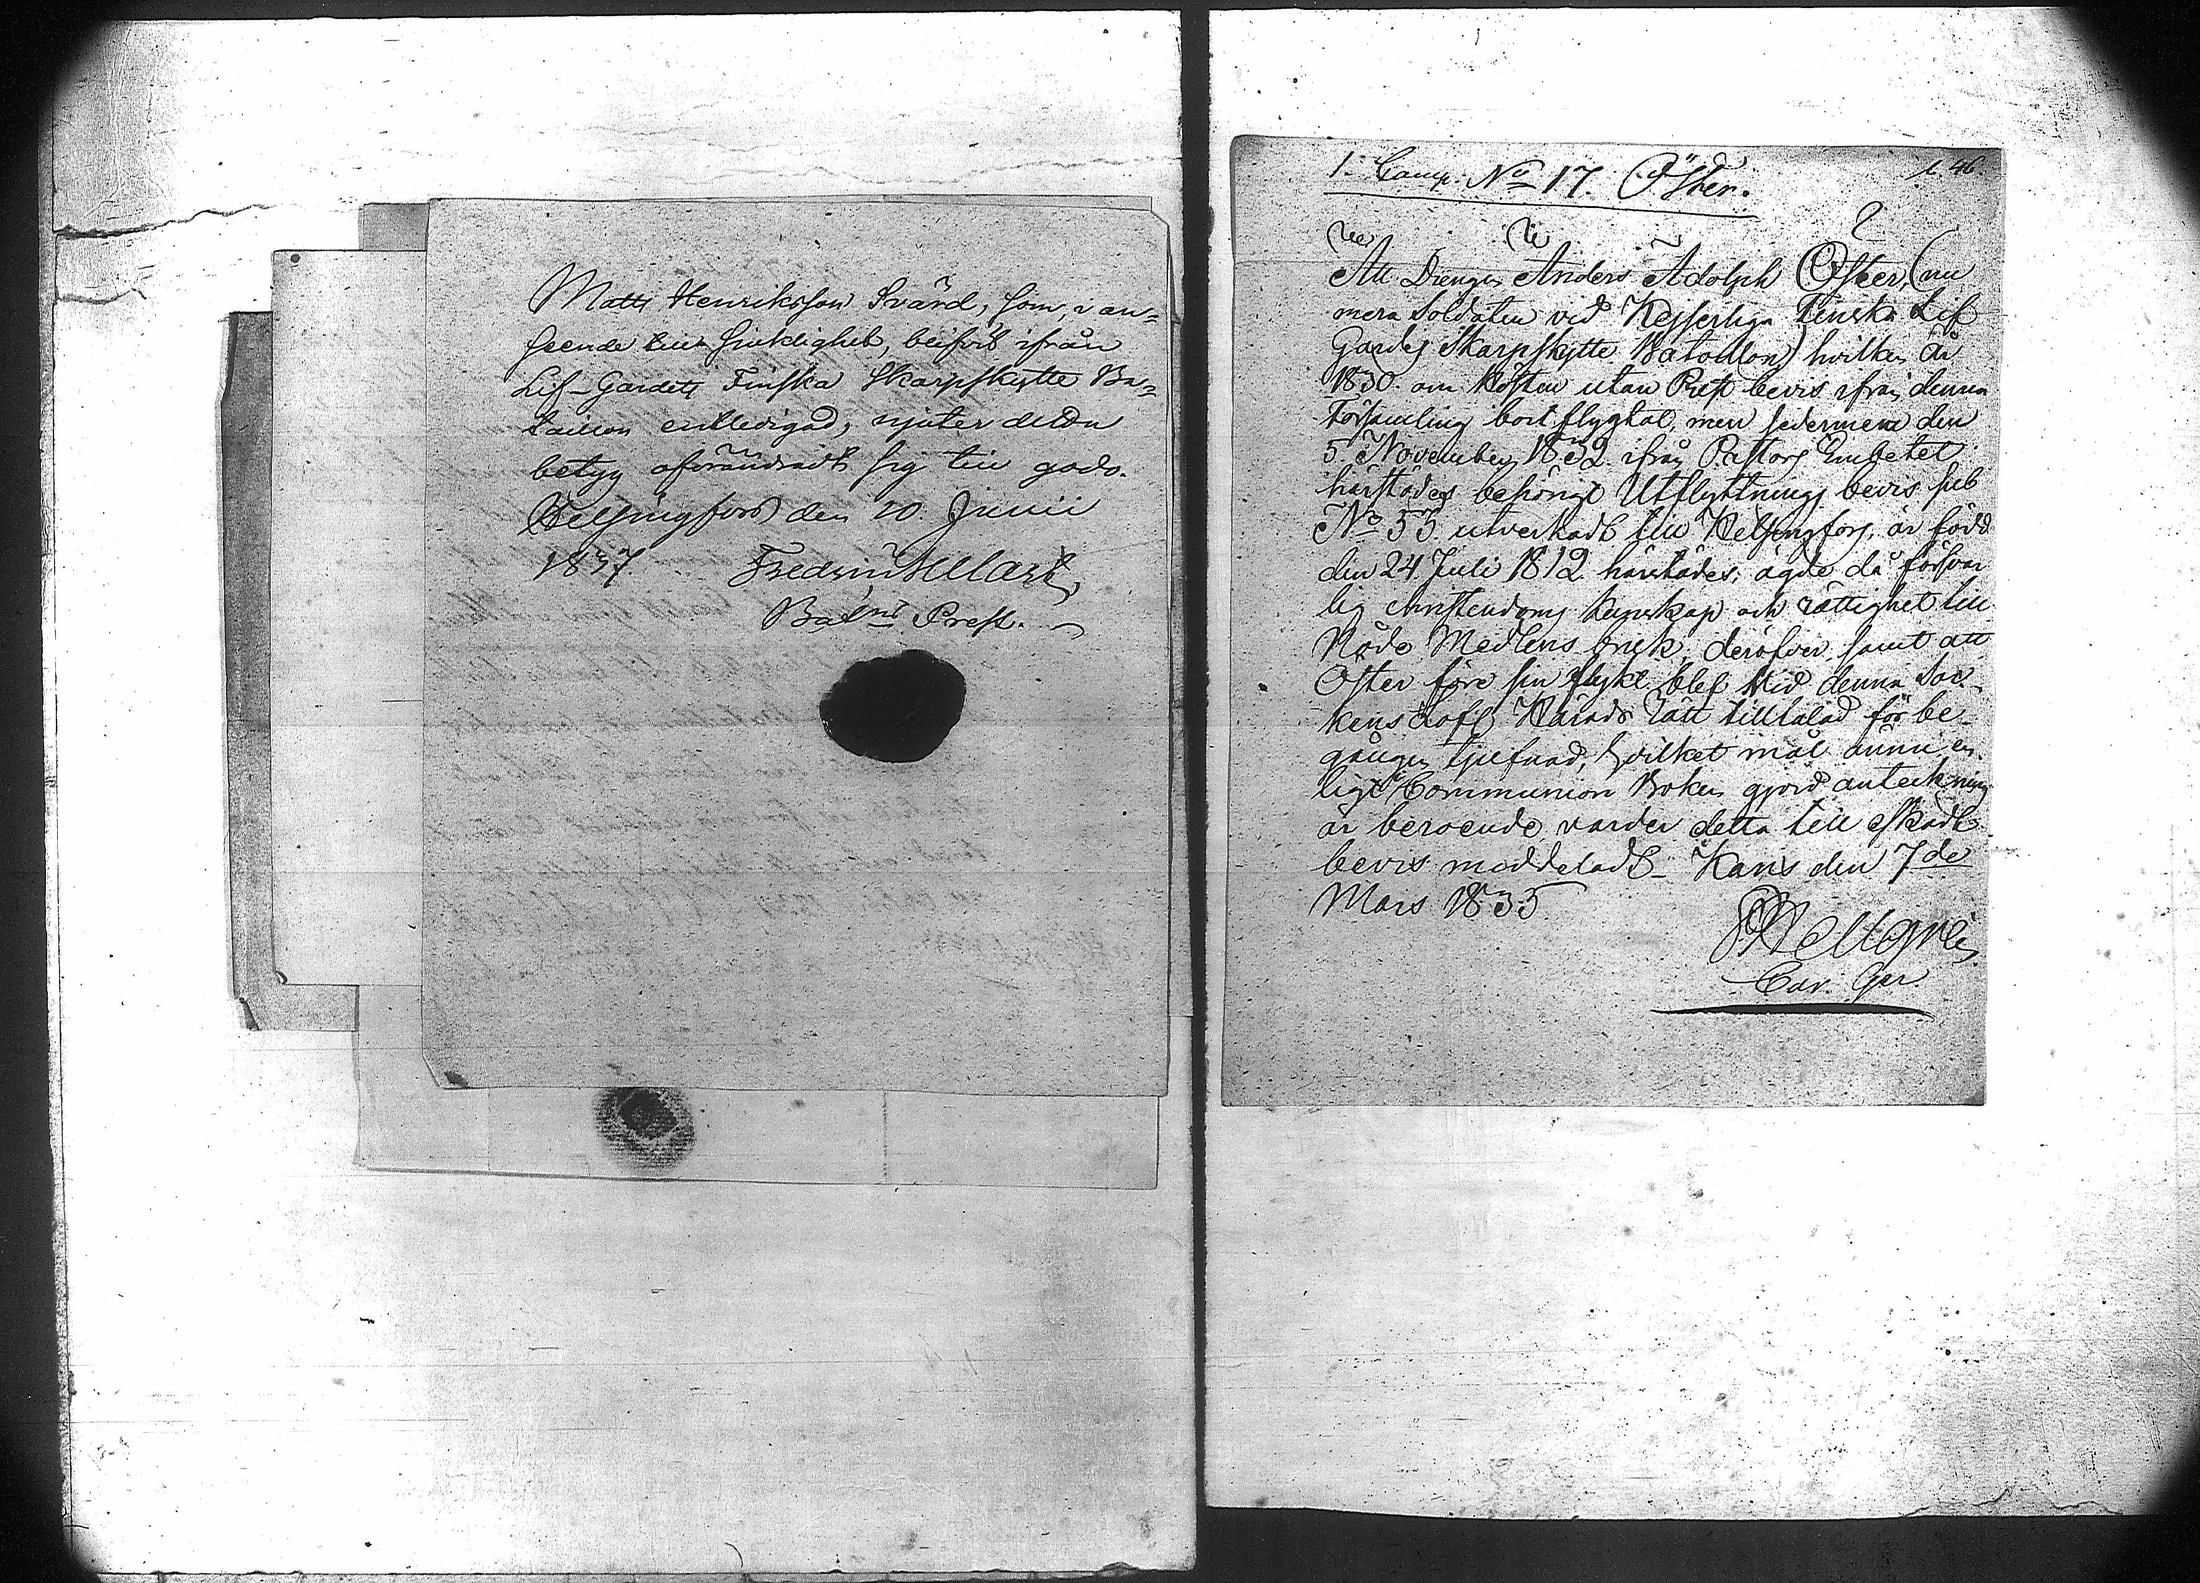 Matts Henriksson Svärd, som, i an-
seende till sjuklighet, blifvit ifrån
Lif-Gardets Finska Skarpskytte Ba-
taillon entledigad, njuter detta
betyg oförändradt sig till godo.
Helsingfors den 20 Junii
1837.
Batns Prest.
1. Comp. No 17. Öster.
1.46.
Att Drengen Anders Adolph Öster, (nu
mera Soldaten vid Kejserliga Finska Lif
Gardes Skarpskytte Bataillon) hvilken År
1830 om Hösten utan Prest bevis ifrån denna
Församling bortflygtat, men sedermera den
5 November 1832 ifrån Pastors Embetet
härstädes behörigt Utflyttnings bevis sub
No 55. utverkadt till Helsingfors, är född
den 24 Juli 1812 härstädes, ägde då försvar
lig christendoms kunskap och rättighet till
Nåde Medlens bruk, deröfver samt att
Öster före sin flykt blef vid denna Soc-
kens Lofl. Härads Rätt tilltalad för be-
gången tjufnad, hvilket mål ännu en
ligt Communion Boken gjord anteckning
är beroende varder detta till äskadt
bevis meddeladt. Karis den 7de
Mars 1835